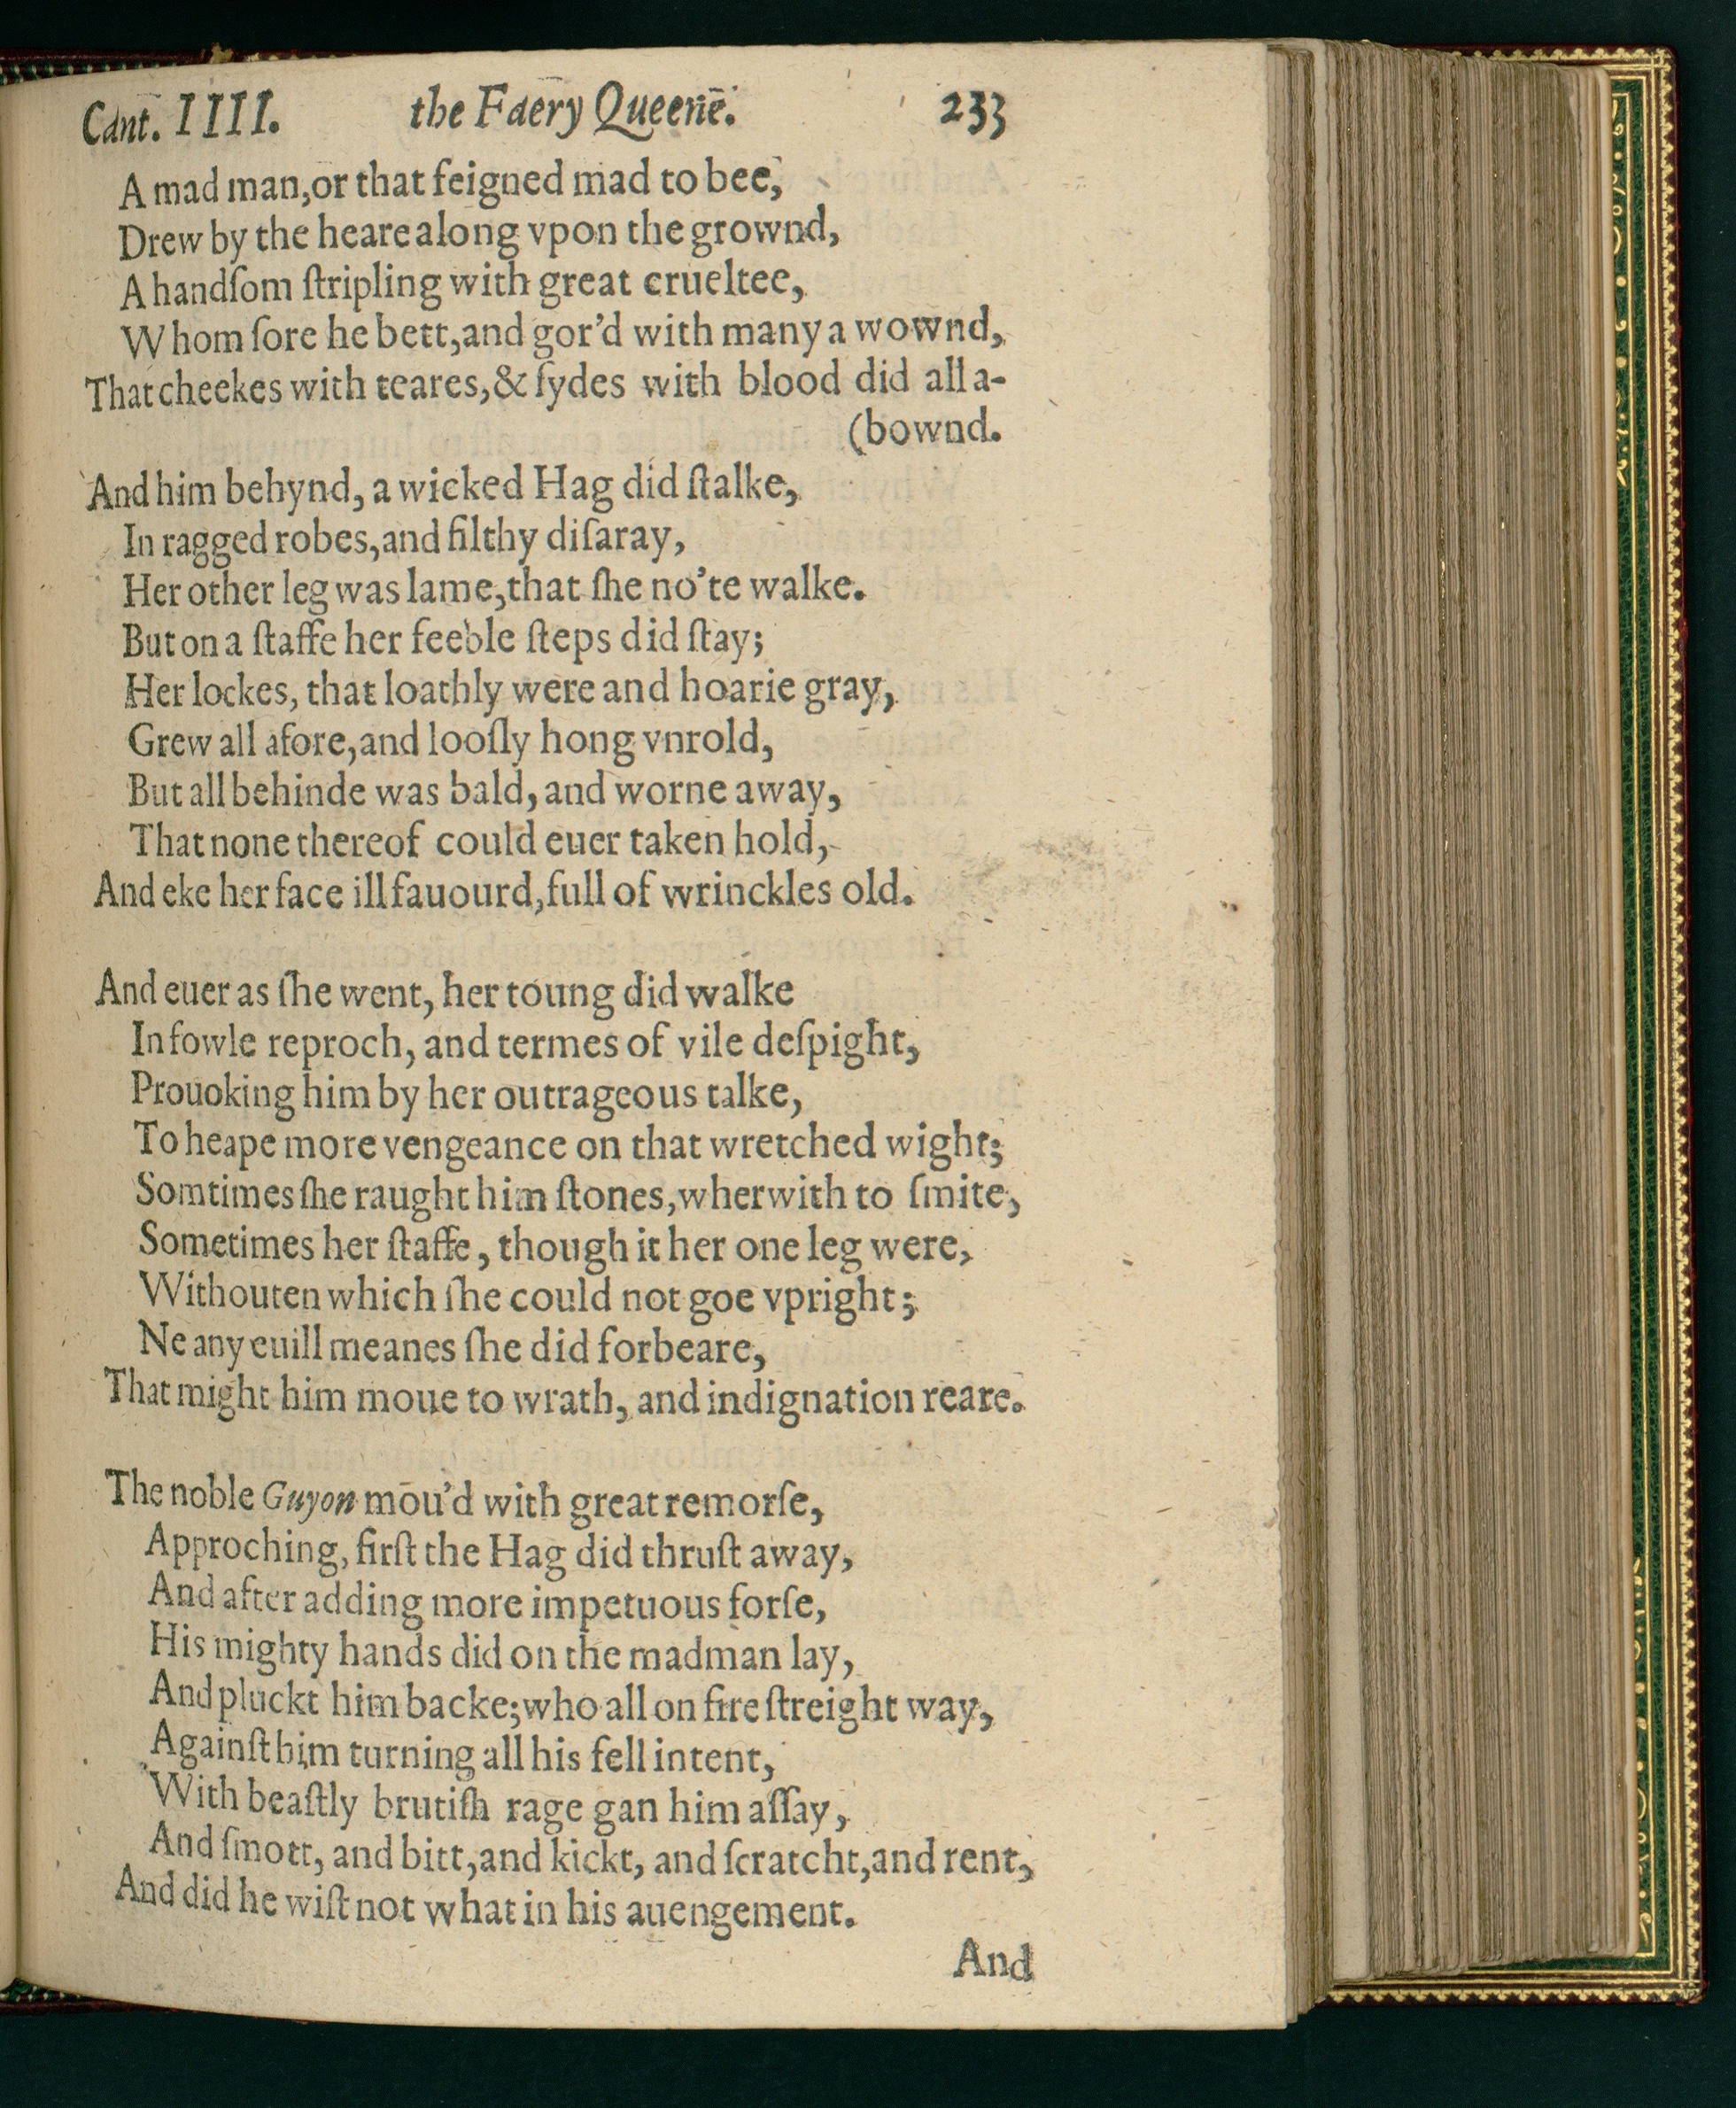 Cant. IIII. the Faery Queene. 233
A mad man,or that feigned mad to bee,
Drew by the heare along vpon the grownd,
A handſom ſtripling with great crueltee,
Whom ſore he bett,and gor'd with many a wownd,
That cheekes with teares,& ſydes with blood did all a-
(bownd.
And him behynd, a wicked Hag did ſtalke,
In ragged robes,and filthy diſaray,
Her other leg was lame,that ſhe no'te walke.
But on a ſtaffe her feeble ſteps did ſtay;
Her lockes, that loathly were and hoarie gray,
Grew all afore,and looſly hong vnrold,
But all behinde was bald, and worne away,
That none thereof could euer taken hold,
And eke her face ill fauourd,full of wrinckles old.
And euer as ſhe went, her toung did walke
In fowle reproch, and termes of vile deſpight,
Prouoking him by her outrageous talke,
To heape more vengeance on that wretched wight;
Somtimes ſhe raught him ſtones,wherwith to ſmite,
Sometimes her ſtaffe, though it her one leg were,
Withouten which ſhe could not goe vpright;
Ne any euill meanes ſhe did forbeare,
That might him moue to wrath, and indignation reare.
The noble Guyon mou'd with great remorſe,
Approching, firſt the Hag did thruſt away,
And after adding more impetuous forſe,
His mighty hands did on the madman lay,
And pluckt him backe;who all on fire ſtreight way,
Againſt him turning all his fell intent,
With beaſtly brutiſh rage gan him aſſay,
And ſmott, and bitt,and kickt, and ſcratcht,and rent,
And did he wiſt not what in his auengement.
And